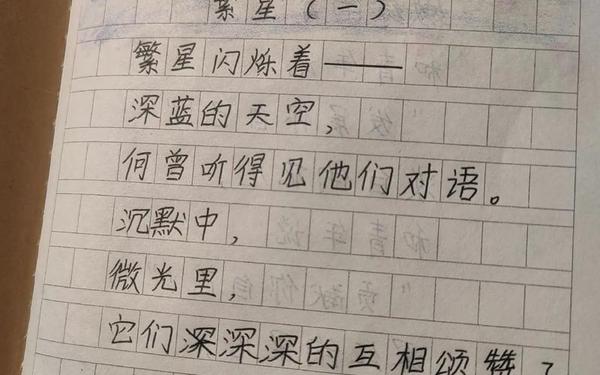 繁星（一）
繁星闪烁着——
深蓝的天空，
何曾听得见他们对语。
沉默中，
微光里，
它们深深深的互相颂赞